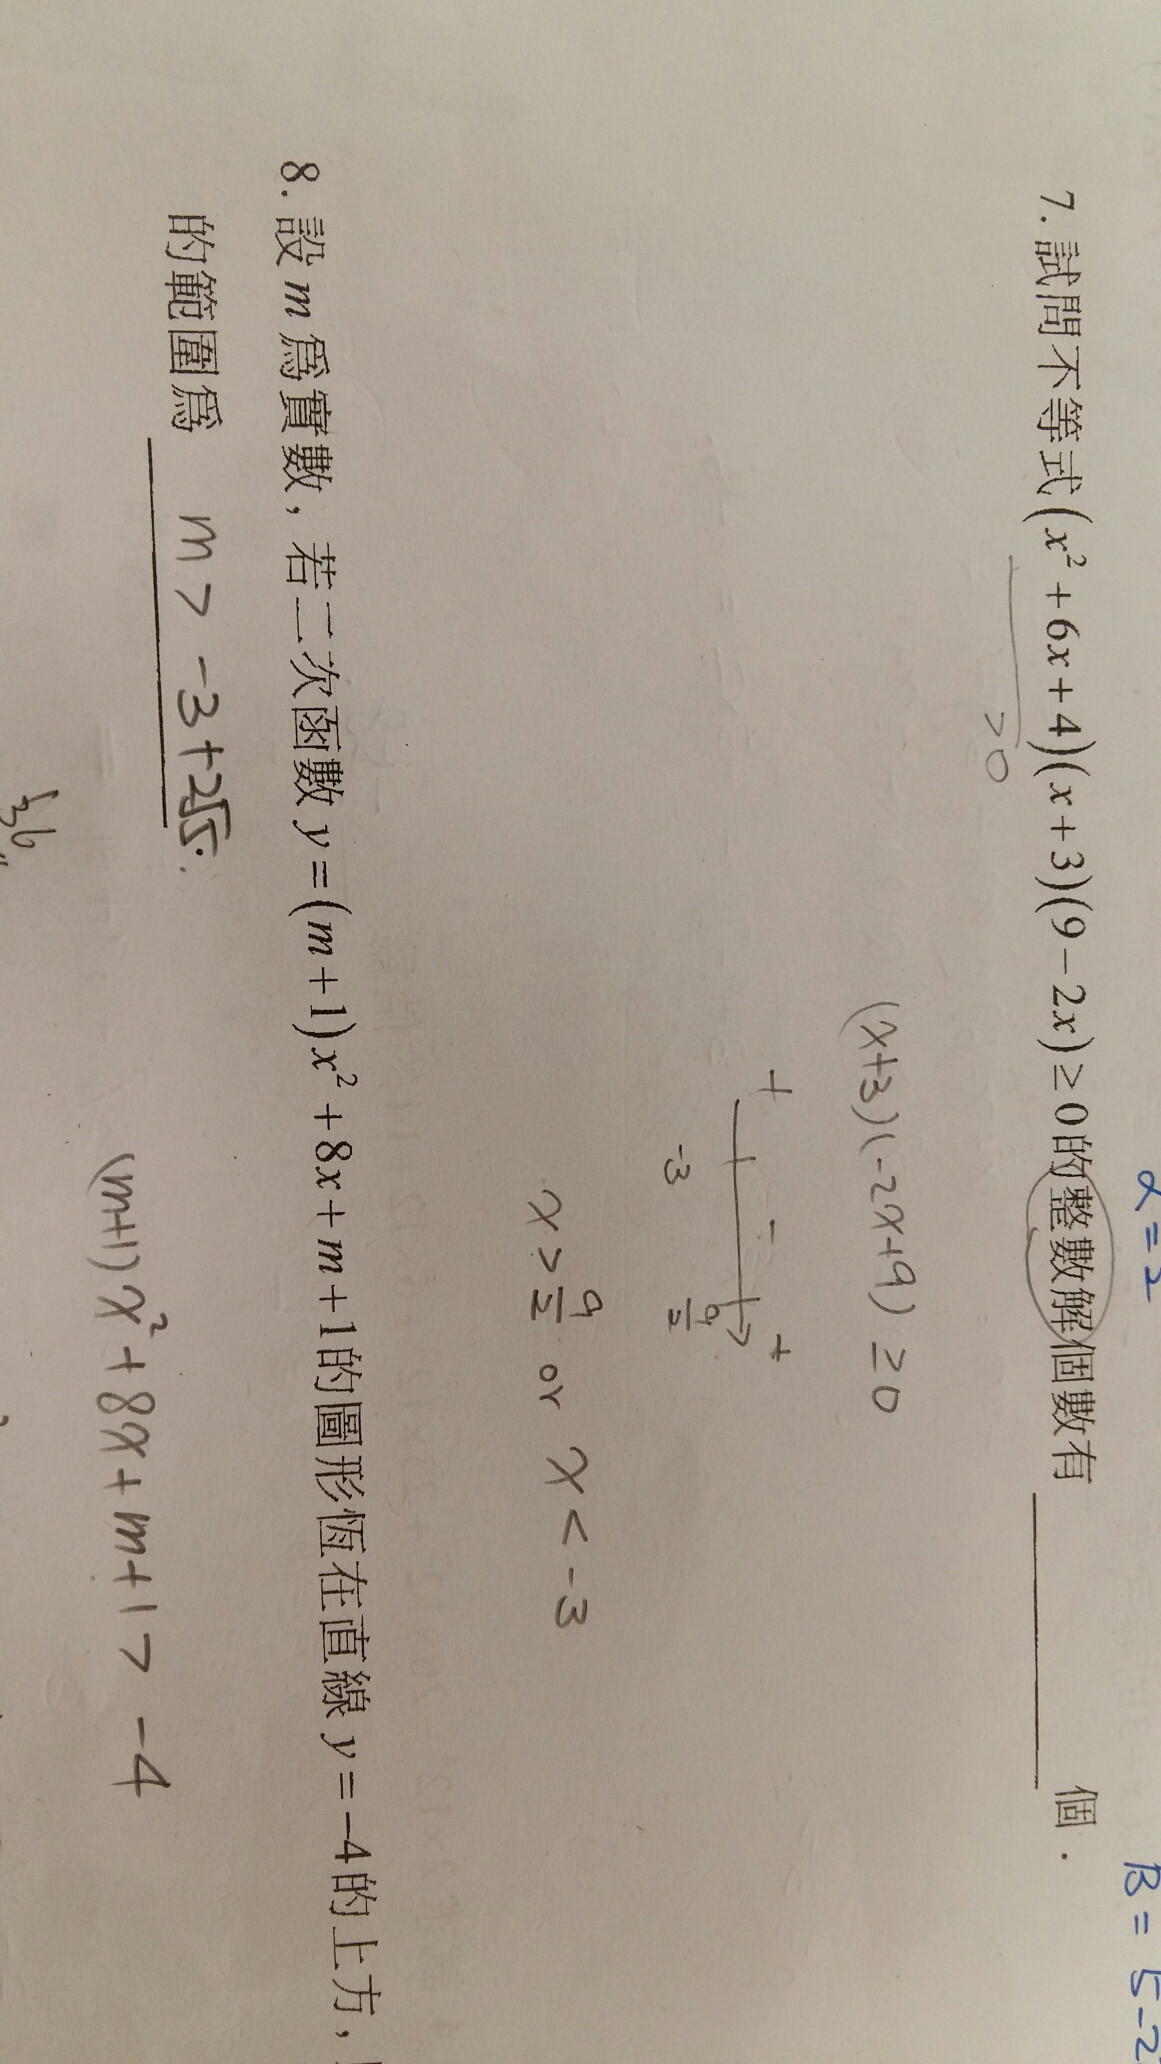 α=2
β=5-2
7. 試問不等式(x²+6x+4)(x+3)(9-2x)≥0的整數解個數有 ______ 個.
>0
(x+3)(-2x+9) ≥0
+ - +
-3 9/2
x>9/2 or x<-3
8. 設m為實數,若二次函數y=(m+1)x²+8x+m+1的圖形恆在直線y=-4的上方,
的範圍為 m>-3+2√5.
(m+1)x²+8x+m+1>-4